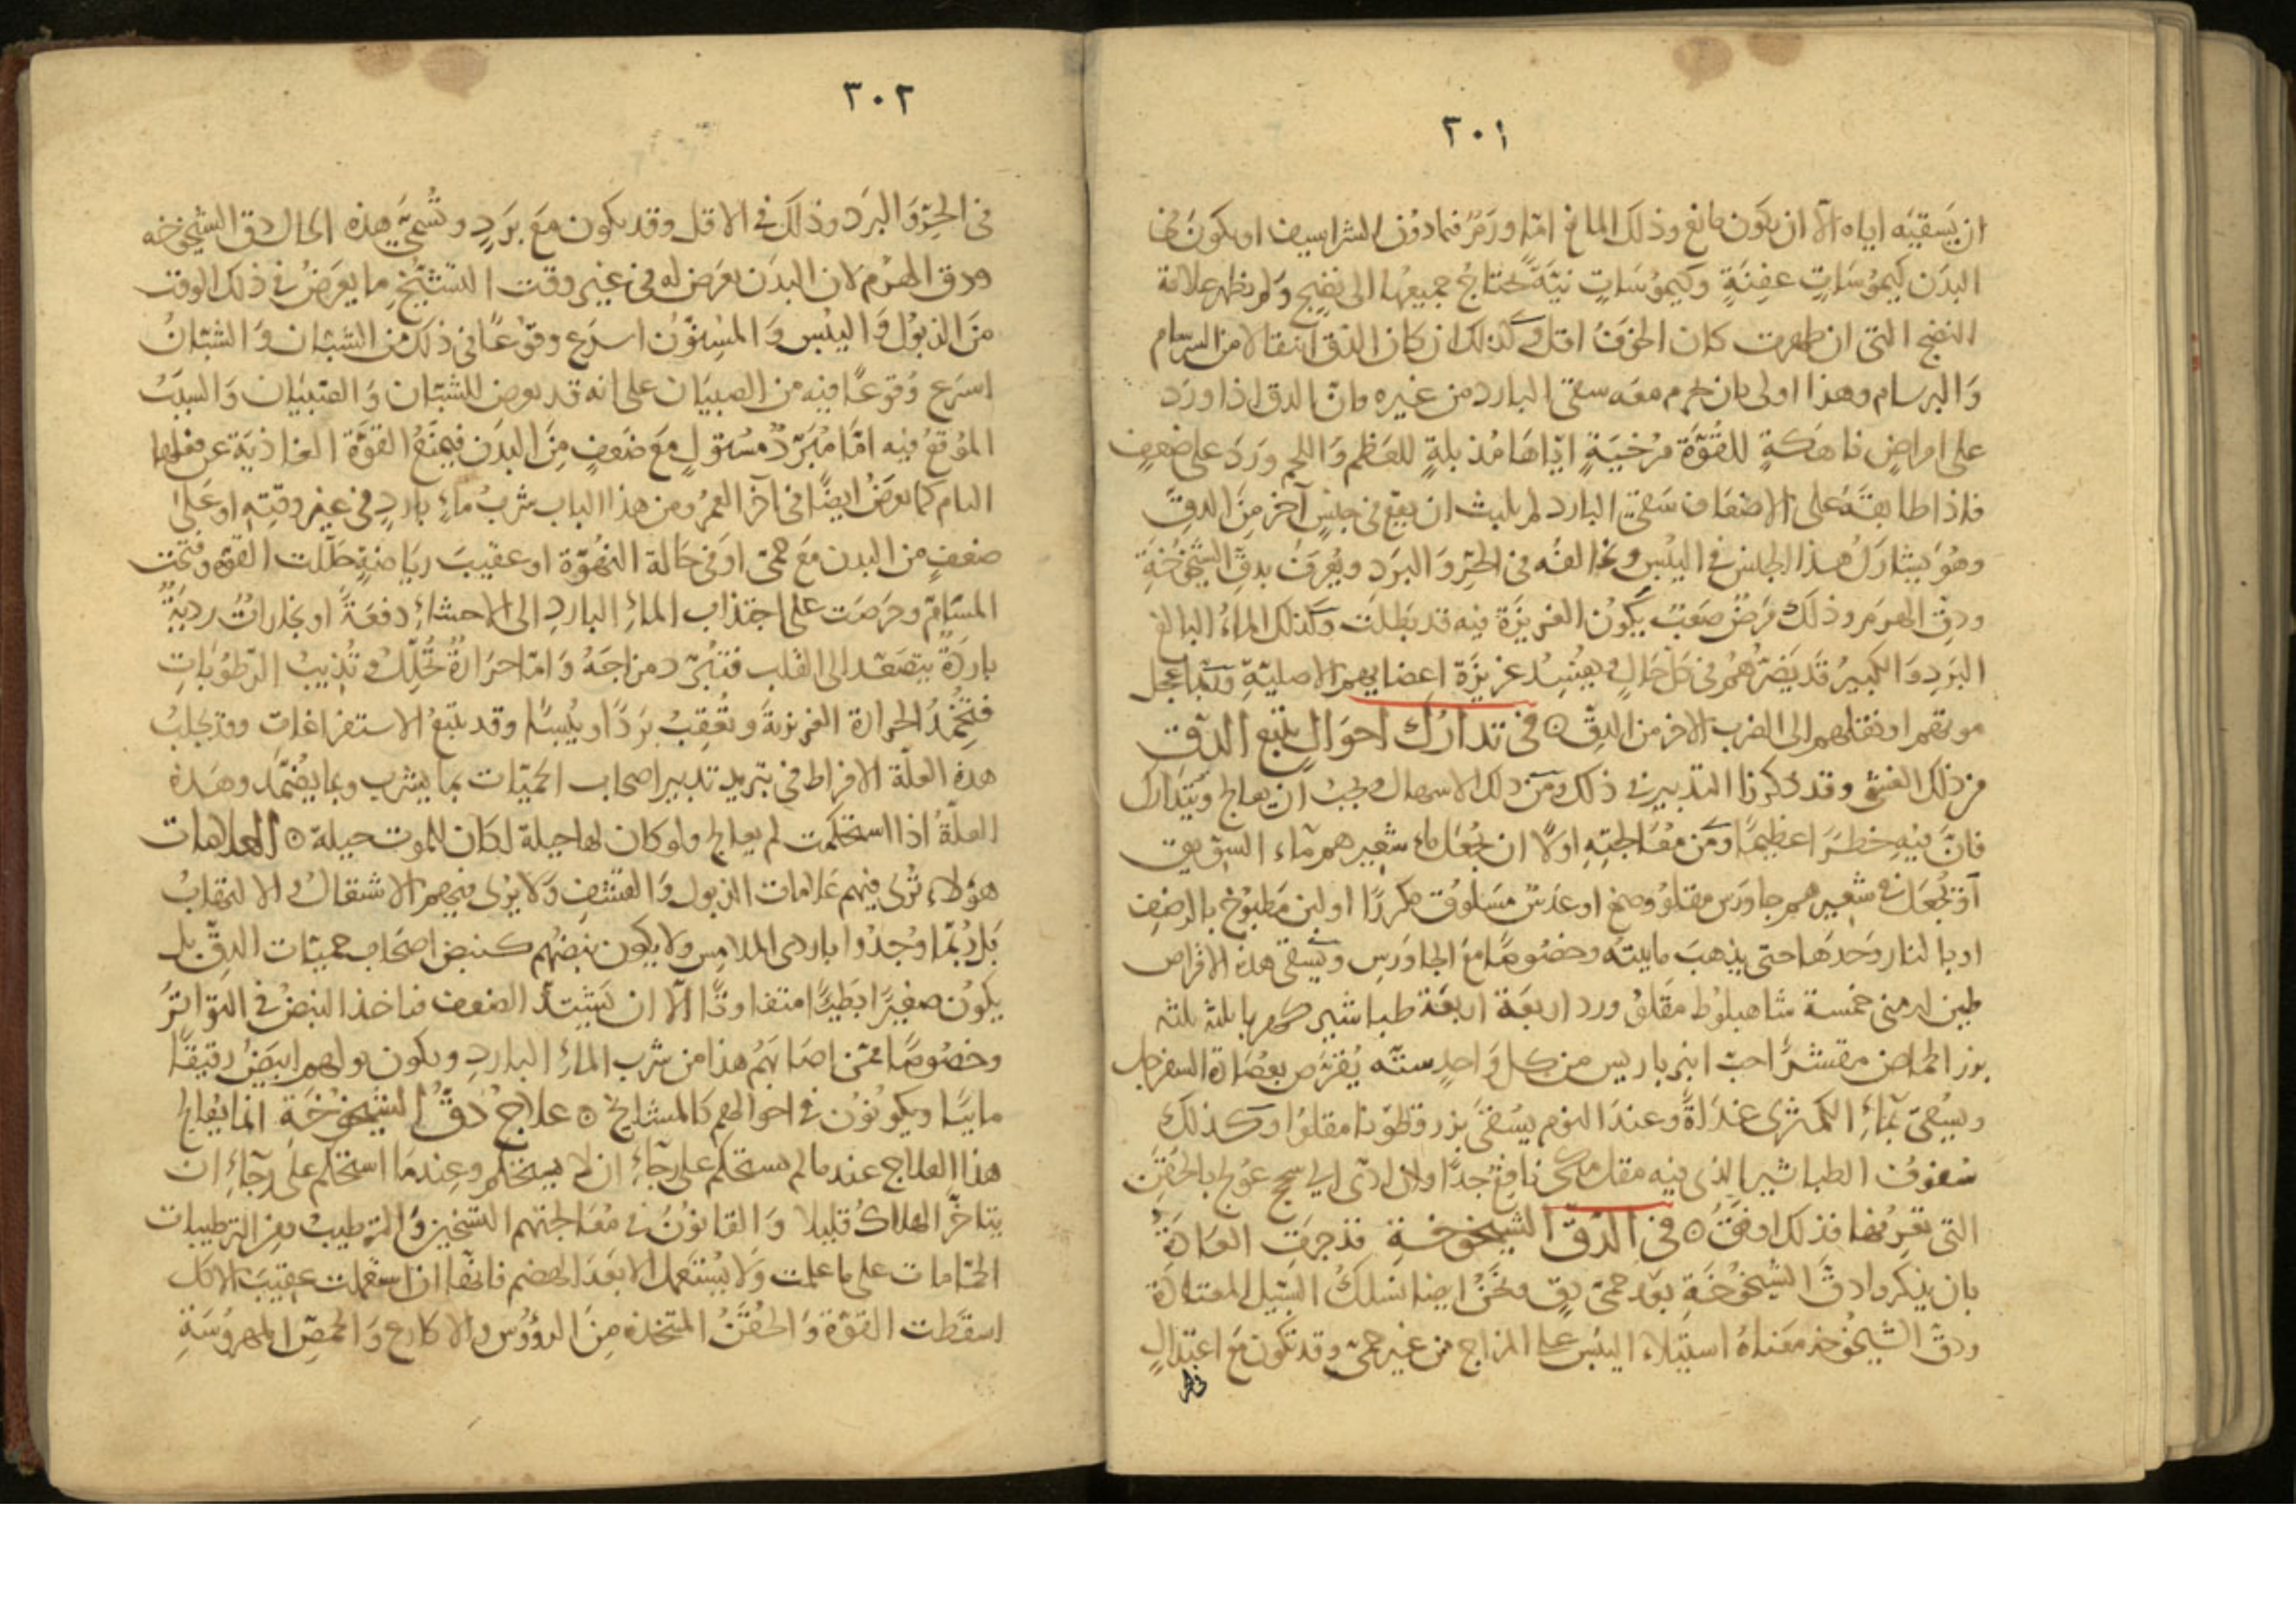 ٣٠١
ان يَسقيَه اياه الّا ان يكون مانع وذلك المانع امّا ورَمٌ فيما دوُن الشراسيف او يكون في
البدَن كيموُسَاتٍ عفِنَةٍ وكيموُسَاتٍ نيّة تحتاجُ جميعها الى نضجٍ وَلم يظهر علامة
النضج التى ان ظهرت كان الخوَفُ اقل وَكذلك ان كان الدق انتقالا من السرسام
وَالبرسام وهذا اولى بان يحرم معَه سقى البارد من غيره فانّ الدق اذا ورَد
على امراضٍ ناهكةٍ للقُوّة مُرْخيَةٍ ايّاهَا مُذبلةٍ للعَظم وَاللحم ورَدَ على ضعفٍ
فاذا طابقَه على الاضعَاف سَقىُ البارد لم يلبث ان يقع فى جنسٍ آخر مِنَ الدقِّ
وهُوَ يشاركُ هذا الجنس فى اليُبْس ويخالفُه فى الحرِّ وَالبرَد ويُعرَفُ بدِقّ الشيْخوُخَةِ
ودِقّ الهرَم وذلك مَرَضٌ صَعْبٌ يَكُونُ الغريزَة فيه قد بَطلَت وَكذلك الماءُ البالغ
البرَد وَالكبير قَد يَضرّهُم فى كلّ حَالٍ ويفُسِدُ غريزَة اعضايهم الاصليّةِ وَربّما عجّل
موتهم او نقلهم الى الضرب الاخر من الدِقّ ۞ فى تدارُك احوَالٍ يتبع الدقّ
من ذلك الغشى وقد ذكرنا التدبير فى ذلك ومن ذلك الاسهال ويجبُ ان يعالج ويُتَدَارك
فانّ فيه خطَرَا عظيمًا ومِن مُعَالجتِهِ اولًا ان يُجُعَل ماء شعيرهم ماء السوَيق
اوْ يُجعَل فى شعيرهم جاورَس مقلوُ وصمغ او عدَسٌ مَسلوُق مكررًا او لبن مَطبوُخ بالرضف
او بالنار وَحدَهَا حتى يذهبَ ماييّته وخصُوصًا معَ الجاورَسِ ويُسقى هذه الاقراص
طين ارمنى خمسة شاهبلوُط مقَلوُ ورد اربعَة اربعَة طباشير كهربا ثلثة ثلثة
بزر الحماض مقشّرًا حبّ انبرباريس من كل وَاحدٍ ستّه يُقرّص بعُصَارة السفرجل
ويُسُقىَ بمَاءِ الكمثرى غدَاةً وعندَ النوم يُسْقى بزرقطوُنا مقلوًا وكذلك
سُفوُف الطباشير الذى فيه مقل مكى نافع جدًا وان ادّى الى سحج عوُلج بالحُقَنِ
التى تعرفها فذلك اوفقُ ۞ فى الدّق الشيخوخةِ قد جرَتِ العَادَةُ
بان يذكروا دقَّ الشيْخُوخَةِ بعَد حمّى دِقٍ ونحَنُ ايضا نسلكُ السّبيل المعتادَة
ودقّ الشيْخُوخه معَناهُ استيلاء اليُبس على المزاج من غير حمىّ وقد تكون مَع اعتدالٍ
٣٠٢
فى الحرّ وَالبرَد وذلك فى الاقل وقد يكون معَ برَدٍ وتُسَمَّى هذه الحال دق الشيخوخه
ودق الهَرم لان البدَن يعرَض له فى غير وقت التشيّخ ما يعَرَضُ فى ذلك الوقت
منَ الذبُوُل وَاليُبْس وَالمسِنّوُن اسرَع وقوُعًا فى ذلك من الشبّان وَالشبّانُ
اسرَع وُقوُعًا فيه من الصبيَان على انه قد يعرض للشبّان وَالصّبيَان وَالسبَبُ
المُوُقع فيه امّا مُبَرّدٌ مُسْتولٍ معَ ضَعفٍ مِنَ البدَن فيَمنَعُ القوّة الغاذيَة عن فعلها
التام كما يعرَض ايضًا فى آخر العمُر ومن هذا الباب شربُ ماءٍ باردٍ فى غير وقتِهِ اوعَلى
ضعفٍ من البدن مَعَ حمّى اوَ فى حَالة النهُوّة او عقيبَ ريَاضَةٍ حَلّلت القوّة وفتحت
المسَامّ وحرَصَت على اجتذاب الماءِ الباردِ الى الاحشاءِ دفعَةً او بخاراتٌ رديَةٌ
باردَةٌ يتصَعّد الى القلب فتبُرّد مزاجَهُ وَامّا حرَارَةٌ تُحلّلُ وتُذِيبُ الرّطوُباتِ
فتخُمدُ الحرارة الغريزيةَ وتُعْقِبُ برَدًا ويُبسًا وقد يتبَعُ الاستفراغاتِ وقد يجلبُ
هذه العلّة الافراط فى تبريد تدبير اصحاب الحميّات بما يشرب وبما يضُمّد وهَذهِ
العلّةُ اذا استحكمت لم يعالج ولو كان لها حيلة لكَان للموت حيلة ۞ العلامات
هؤلاء تُرى فيهم عَلامات الذبول وَالقشف وَلا يُرَى فيهم الاشتعال والالتهابُ
بَل رُبّما وُجدُوا باردى الملامِس ولا يكون نبضهُم كنبض اصحَاب حميّات الدِقّ بل
يكوُن صغيرًا بَطيئًا متفاوتًا الّا ان يَشتدَّ الضعف فياخذ النبضُ فى التواترُ
وخصُوصًا فمّن اصَابَهُم هذا من شرب الماءِ الباردِ ويكون بولهم ابيَضَ رقيقًا
ماييًا ويكونُوُن فى احوالهم كالمشايخ ۞ علاج دقُّ الشيْخوُخَةِ انما يُعالج
هذا العلاج عند ما لم يستحكم على رجآءِ ان لا يستحكم وعِندَما استحكم على رجآءِ ان
يتاخّر الهلاك قليلا وَالقانوُن فى مُعَالجتهم التسْخين وَالترطيبُ ومن الترطيبات
الحمّامات على ما علمت وَلا يُستعَمل الا بعَدَ الهضم فانّها ان استعملت عقيبَ الاكل
اسقَطت القوّة وَالحُقنُ المتخذه مِنَ الرؤوُس والاكارع وَالحمّص المهروُسَةِ